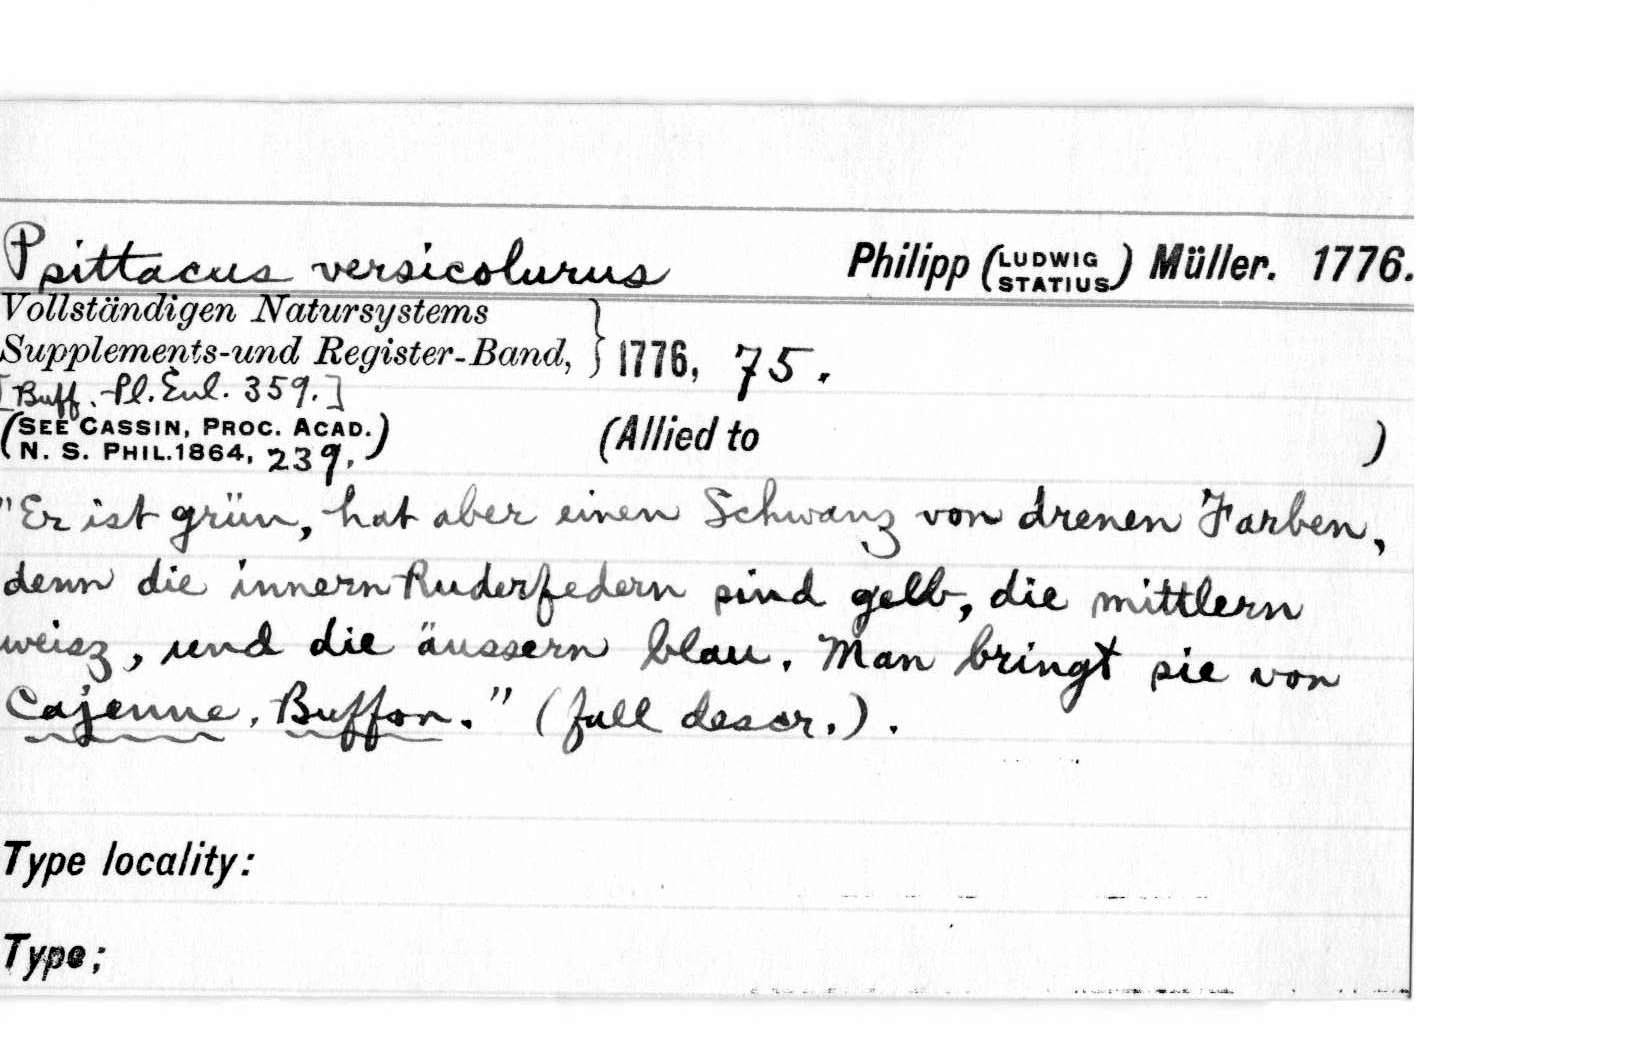 Psittacus versicolurus Philipp (LUDWIG STATIUS) Müller. 1776.
Vollständigen Natursystems
Supplements-und Register-Band, } 1776, 75.
[Buff. Pl. Enl. 359.]
(SEE CASSIN, PROC. ACAD.
N. S. PHIL. 1864, 239.) (Allied to )
"Er ist grün, hat aber einen Schwanz von drenen Farben,
denn die innern Ruderfedern sind gelb, die mittlern
weisz, und die äussern blau. Man bringt sie von
Cajenne. Buffon." (full descr.).
Type locality:
Type;